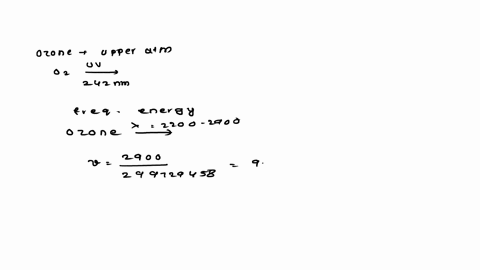 ozone → upper atm
O2 UV →
242 nm
freq. energy
ozone → λ = 2200 - 2900
ν = 2900 / 299729458 = 9.